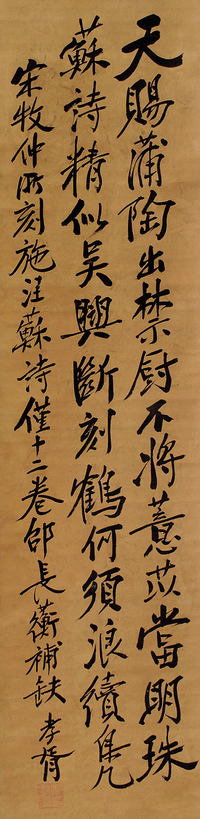 天賜蒲陶出禁厨不將薏苡當明珠
蘇詩精似吳興斷刻鶴何須浪續鳧
宋牧仲所刻施注蘇詩僅十二卷邵長蘅補缺 孝胥